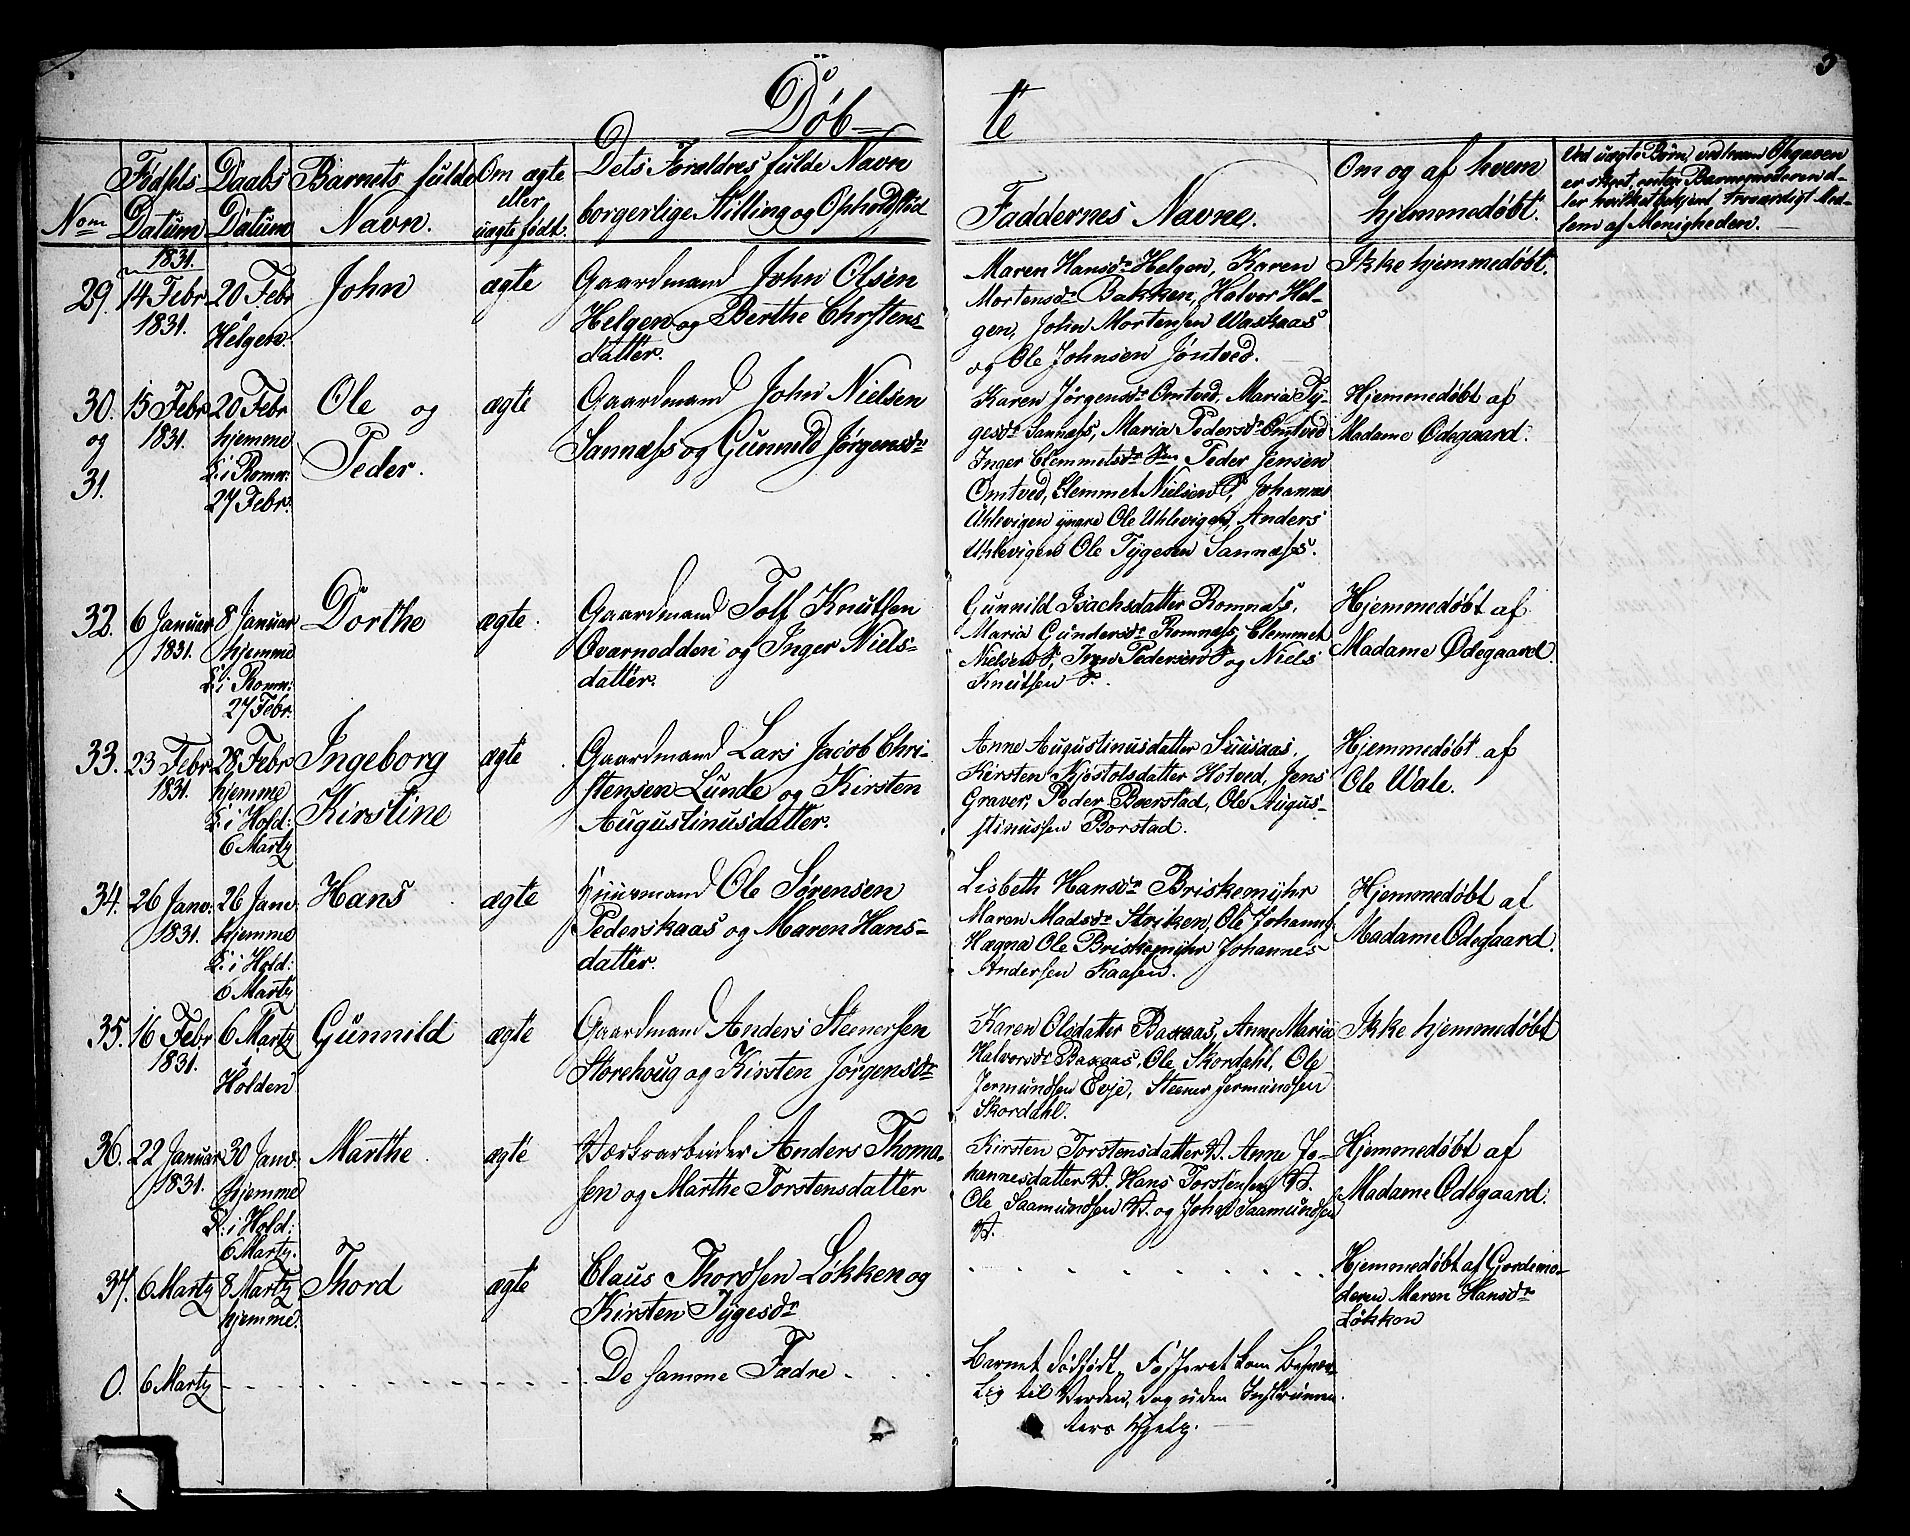 Döb-te
3
Nom
Fødsels Datum
Daabs Datum
Barnets fulde Navn.
Om ægte eller uægte født.
Dets Forældres fulde Navn borgerlige Stilling og Opholdstid
Faddernes Navne.
Om og af hvem hjemmedøbt.
Ved uægte Børn, ved hvem Opgaven
er skeet, enten Barnemoderen el-
ler hvilket bekjent troværdigt Med-
lem af Menigheden.
1831.
29.
14 Febr
1831.
20 Febr
Helgen.
John
ægte
Gaardmand John Olsen
Helgen og Berthe Chrstens-
datter.
Maren Hansdr Helgen, Karen
Mortensdr Bakken, Halvor Hel-
gen, John Mortensen Waskaas
og Ole Johnsen Jöntved.
Ikke hjemmedøbt.
30.
og
31.
15 Febr
1831.
20 Febr
hjemme
D: i Romn:
27 Febr.
Ole og
Peder.
ægte
Gaardmand John Nielsen
Sannæss og Gunnild Jørgensdr
Karen Jørgensdr Omtved, Maria Ty-
gesdr Sannæss, Maria Pedersdr Omtved
Inger Clemmetsdr Peder Jensen
Omtved, Clemmet Nielsen Johannes
Uhlevigen yngre Ole Uhlevigen, Anders
Uhlevigen Ole Tygesen Sannæss.
Hjemmedøbt af
Madame Ødegaard.
32.
6 Januar
1831.
8 Januar
hjemme
D: i Romn:
27 Febr.
Dorthe
ægte.
Gaardmand Tolf Knutsen
Qvarnodden og Inger Niels-
datter.
Gunnild Isachsdatter Romnæss,
Maria Gundersdr Romnæss, Clemmet
Nielsen Pedersen og Niels
Knutsen
Hjemmedøbt af
Madame Ødegaard.
33.
23 Febr
1831.
28 Febr
hjemme
D: i Hold:
6 Marty
Ingeborg
Kirstine
ægte
Gaardmand Lars Jacob Chri-
stensen Lunde og Kirsten
Augustinusdatter.
Anne Augustinusdatter Suusaas,
Kirsten Kjøstolsdatter Hotved, Jens
Graver, Peder Boerstad, Ole Augus-
stinussen Borstad.
Hjemmedøbt af
Ole Wale.
34.
26 Janv:
1831.
26 Janv
hjemme
D: i Hold:
6 Marty
Hans
ægte
Huusmand Ole Sørensen
Pederskaas og Maren Hans-
datter.
Lisbeth Hansdr Briskemyhr
Maren Madsdr Striken, Ole Johannes
Hægna Ole Briskemyhr Johannes
Andersen Kaasen.
Hjemmedøbt af
Madame Ødegaard.
35.
16 Febr
1831.
6 Marty
Holden
Gunnild
ægte
Gaardmand Anders Steenersen
Storehoug og Kirsten Jørgensdr
Karen Olsdatter Baxaas, Anne Maria
Halvorsdr Baxaas, Ole Skordahl, Ole
Jermundsen Evje, Steener Jermundsen
Skordahl.
Ikke hjemmedøbt
36.
22 Januar
1831.
30 Janv:
hjemme
D: i Hold:
6 Marty.
Marthe
ægte
Værksarbeider Anders Thoma-
sen og Marthe Torstensdatter
Kirsten Torstensdatter V. Anne Jo-
hannesdatter V. Hans Torstensen V.
Ole Saamundsen V. og John Saamundsen
V.
Hjemmedøbt af
Madame Ødegaard.
37.
6 Marty
8 Marty
hjemme.
Thord
ægte
Claus Thordsen Løkken og
Kirsten Tygesdr
Hjemmedøbt af Gjordemo-
deren Maren Hansdr
Løkken
0.
6 Marty
De samme Fædre
Barnet dødfødt, Fosteret kom besvær-
lig til Verden, dog uden Instrumen-
ters Hjelp.